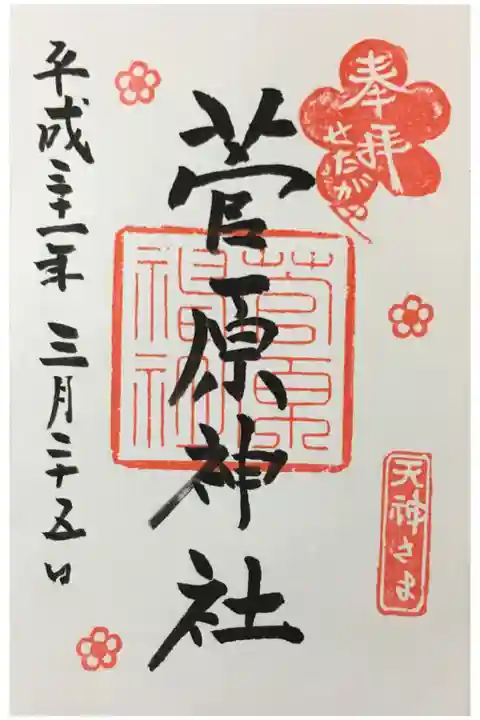 奉拝
せたがや
天神さま
菅原神社
菅原神社
平成三十一年 三月二十五日